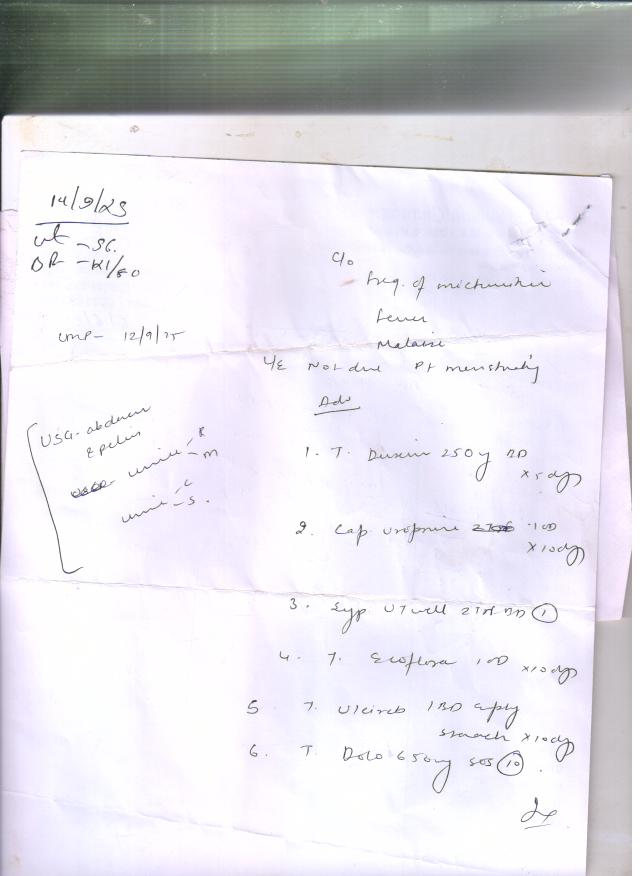 14/9/25
wt - 56.
BP - 121/80
c/o
freq. of micturition
fever
LMP - 12/9/25
Malaise
L/E Not done Pt menstruating
Adv
USG - abdomen
& pelvis
urine - R
M
urine - C
S.
1. T. 250mg BD
x 5 days
2. Cap 1OD
x 10 days
3. Syp UTwell 2TSF BD (1)
4. T. Ecoflora 1OD x 10 days
5 T. 1BD empty
stomach x 10 days
6. T. Dolo 650mg SOS (10).